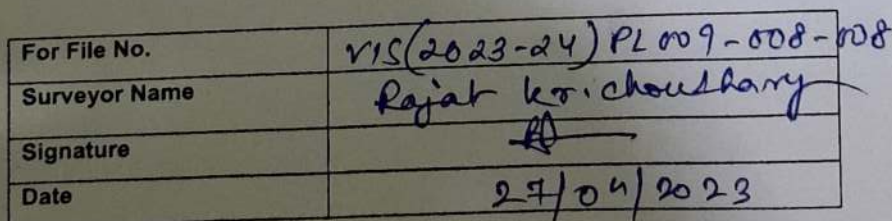 For File No. VIS(2023-24)PL009-008-008
Surveyor Name Rajat kr. choudhary
Signature
Date 27/04/2023